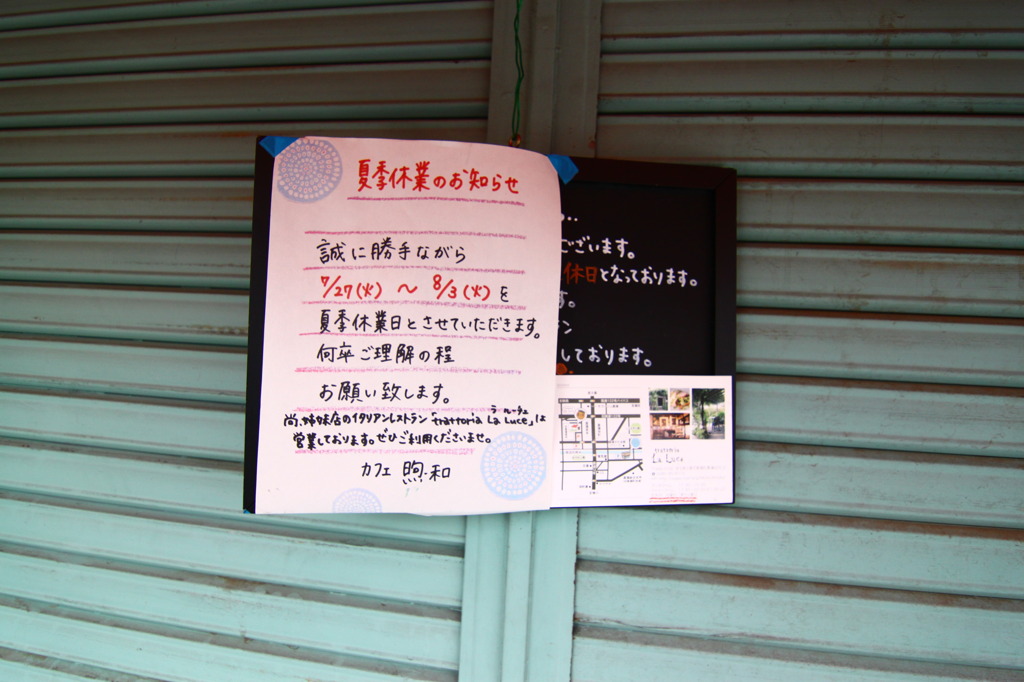 夏季休業のお知らせ
誠に勝手ながら
7/27(火) ～ 8/3(火)を
夏季休業日とさせていただきます。
何卒ご理解の程
お願い致します。
ラ・ルーチェ
尚、姉妹店のイタリアンレストラン「trattoria La Luce」は
営業しております。ぜひご利用くださいませ。
カフェ 煦和
ございます。
休日となっております。
す。
ン
しております。
trattoria
La Luce